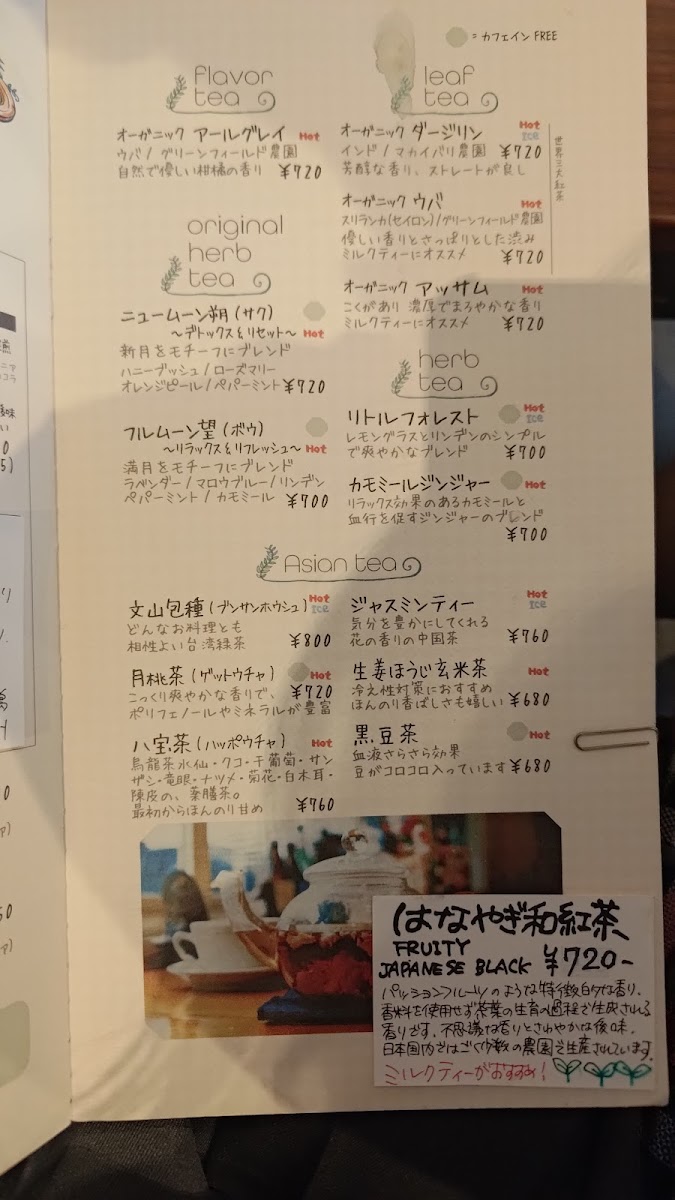 = カフェイン FREE
flavor
tea
オーガニック アールグレイ Hot
ウバ / グリーンフィールド農園
自然で優しい柑橘の香り ¥720
original
herb
tea
ニュームーン朔(サク)
〜デトックス&リセット〜 Hot
新月をモチーフにブレンド
ハニーブッシュ/ローズマリー
オレンジピール/ペパーミント ¥720
フルムーン望(ボウ)
〜リラックス&リフレッシュ〜 Hot
満月をモチーフにブレンド
ラベンダー/マロウブルー/リンデン
ペパーミント/カモミール ¥700
leaf
tea
オーガニック ダージリン Hot
Ice
インド/マカイバリ農園 ¥720
芳醇な香り、ストレートが良し
世界三大紅茶
オーガニック ウバ Hot
スリランカ(セイロン)/グリーンフィールド農園
優しい香りとさっぱりとした渋み
ミルクティーにオススメ ¥720
オーガニック アッサム Hot
こくがあり 濃厚でまろやかな香り
ミルクティーにオススメ ¥720
herb
tea
リトルフォレスト Hot
Ice
レモングラスとリンデンのシンプル
で爽やかなブレンド ¥700
カモミールジンジャー Hot
リラックス効果のあるカモミールと
血行を促すジンジャーのブレンド
¥700
Asian tea
文山包種(ブンサンホウシュ) Hot
Ice
どんなお料理とも
相性よい台湾緑茶 ¥800
月桃茶(ゲットウチャ) Hot
こっくり爽やかな香りで、 ¥720
ポリフェノールやミネラルが豊富
八宝茶(ハッポウチャ) Hot
烏龍茶水仙・クコ・干葡萄・サン
ザシ・竜眼・ナツメ・菊花・白木耳・
陳皮の、薬膳茶。
最初からほんのり甘め ¥760
ジャスミンティー Hot
Ice
気分を豊かにしてくれる
花の香りの中国茶 ¥760
生姜ほうじ玄米茶 Hot
冷え性対策におすすめ
ほんのり香ばしさも嬉しい ¥680
黒豆茶 Hot
血液さらさら効果
豆がコロコロ入っています ¥680
はなやぎ和紅茶
FRUITY
JAPANESE BLACK ¥720-
パッションフルーツのような特徴的な香り。
香料を使用せず茶葉の生育の過程で生成される
香りです。不思議な香りとさわやかな後味。
日本国内ではごく少数の農園で生産されています。
ミルクティーがおすすめ!